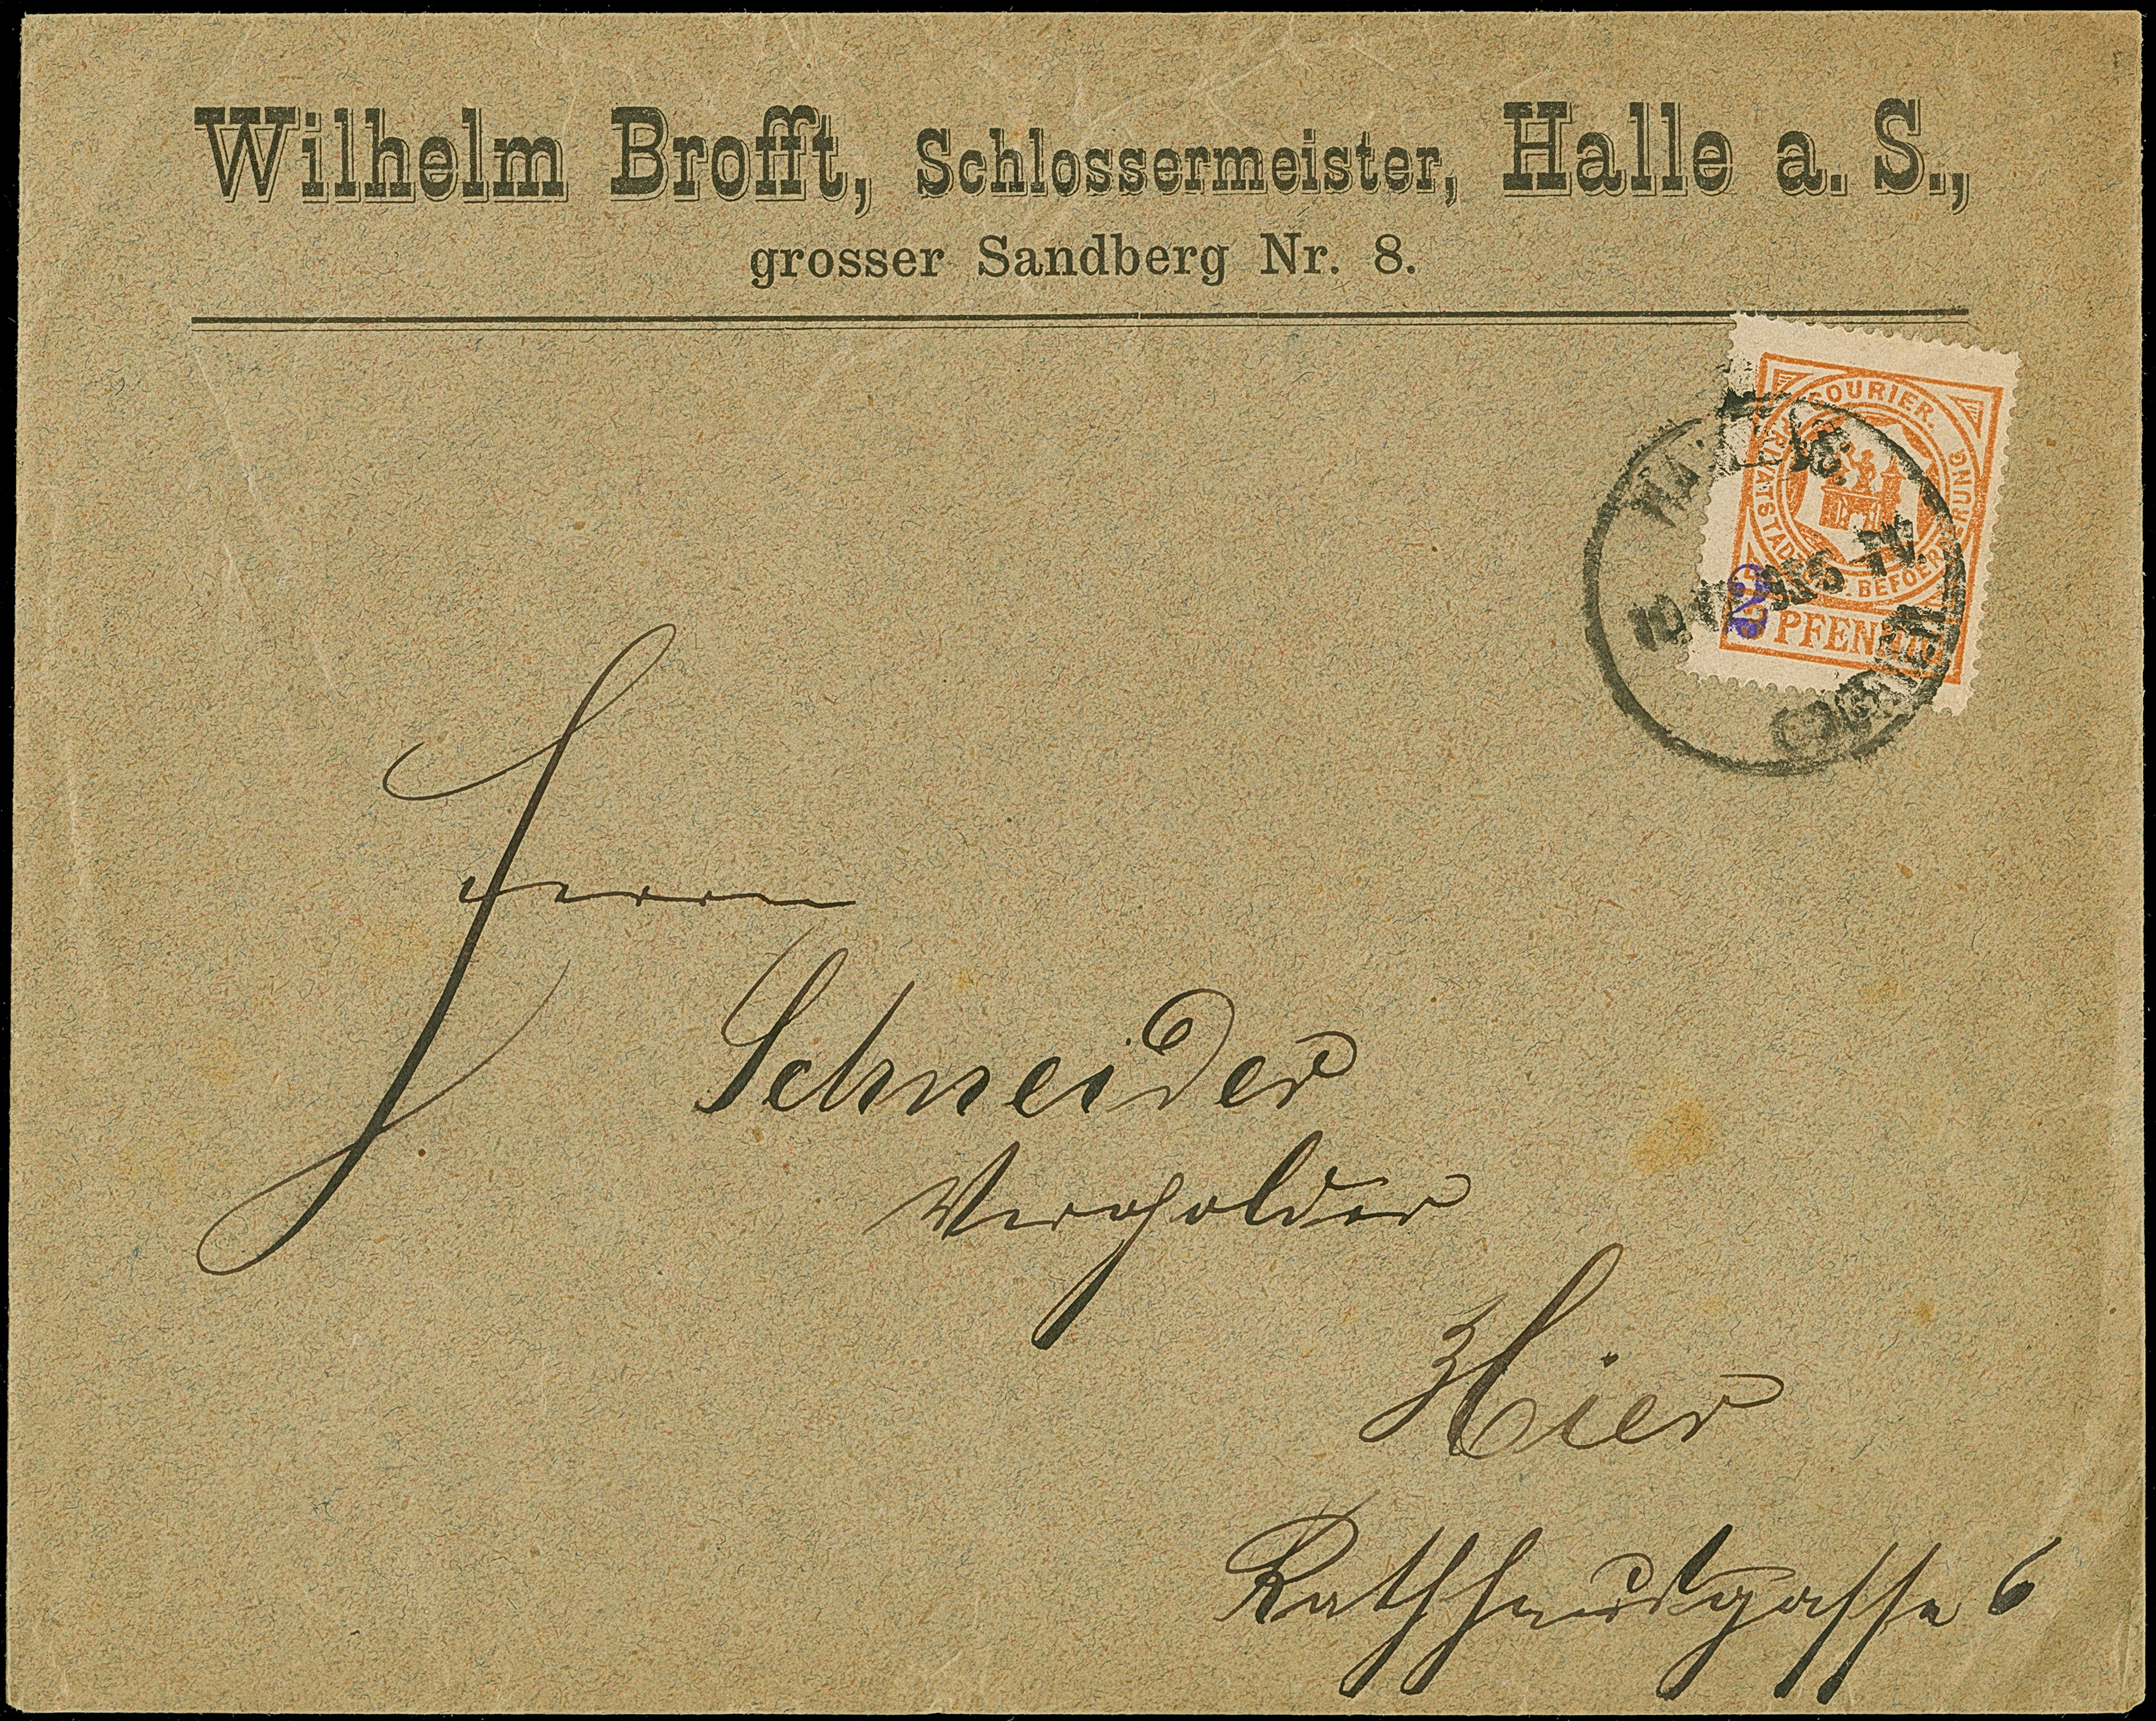 Wilhelm Brofft, Schlossermeister, Halle a. S.,
grosser Sandberg Nr. 8.
COURIER.
PRIVATSTADTBRIEF BEFOERDERUNG
2
PFENNIG
HALLE
COURIER
Herrn
Schneider
Vergolder
Hier
Rathhausgasse 6